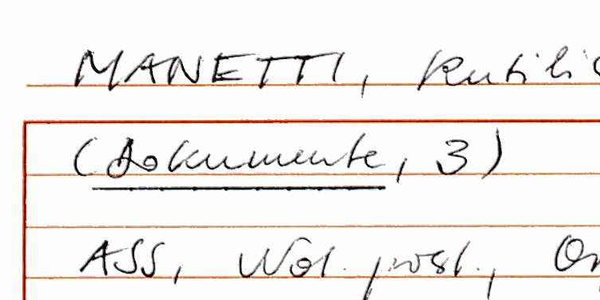 MANETTI, Rutilio
(Dokumente, 3)
ASS, Not. post.,